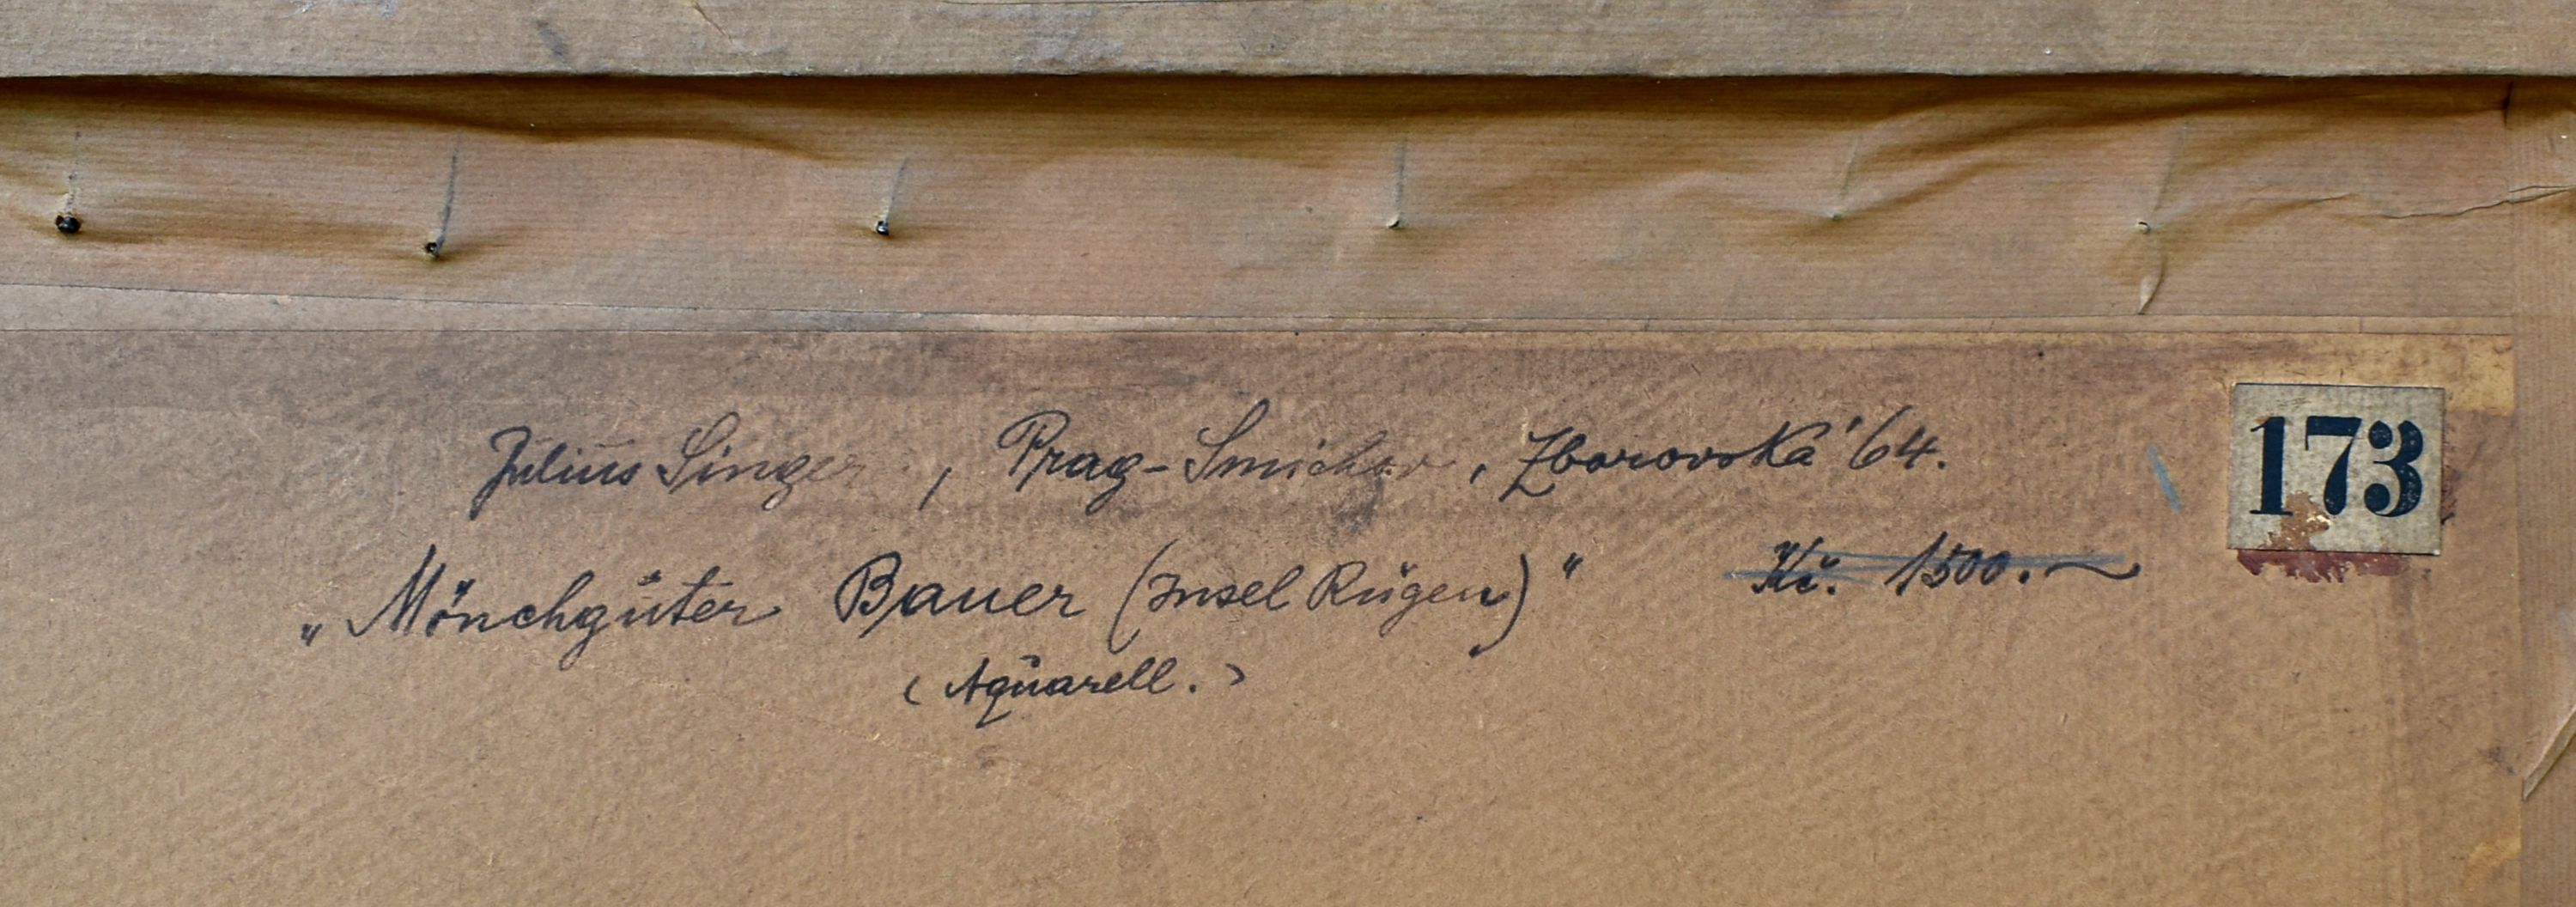 Julius Singer, Prag-Smichov, Zborovská 64.
173
„Mönchgüter Bauer (Insel Rügen)“ Kč. 1500.—
(Aquarell.)